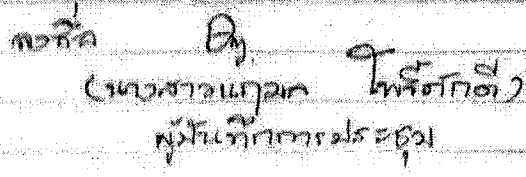 ลงชื่อ
(นางสาวแกมก โพธิ์ศักดิ์)
ผู้บันทึกการประชุม